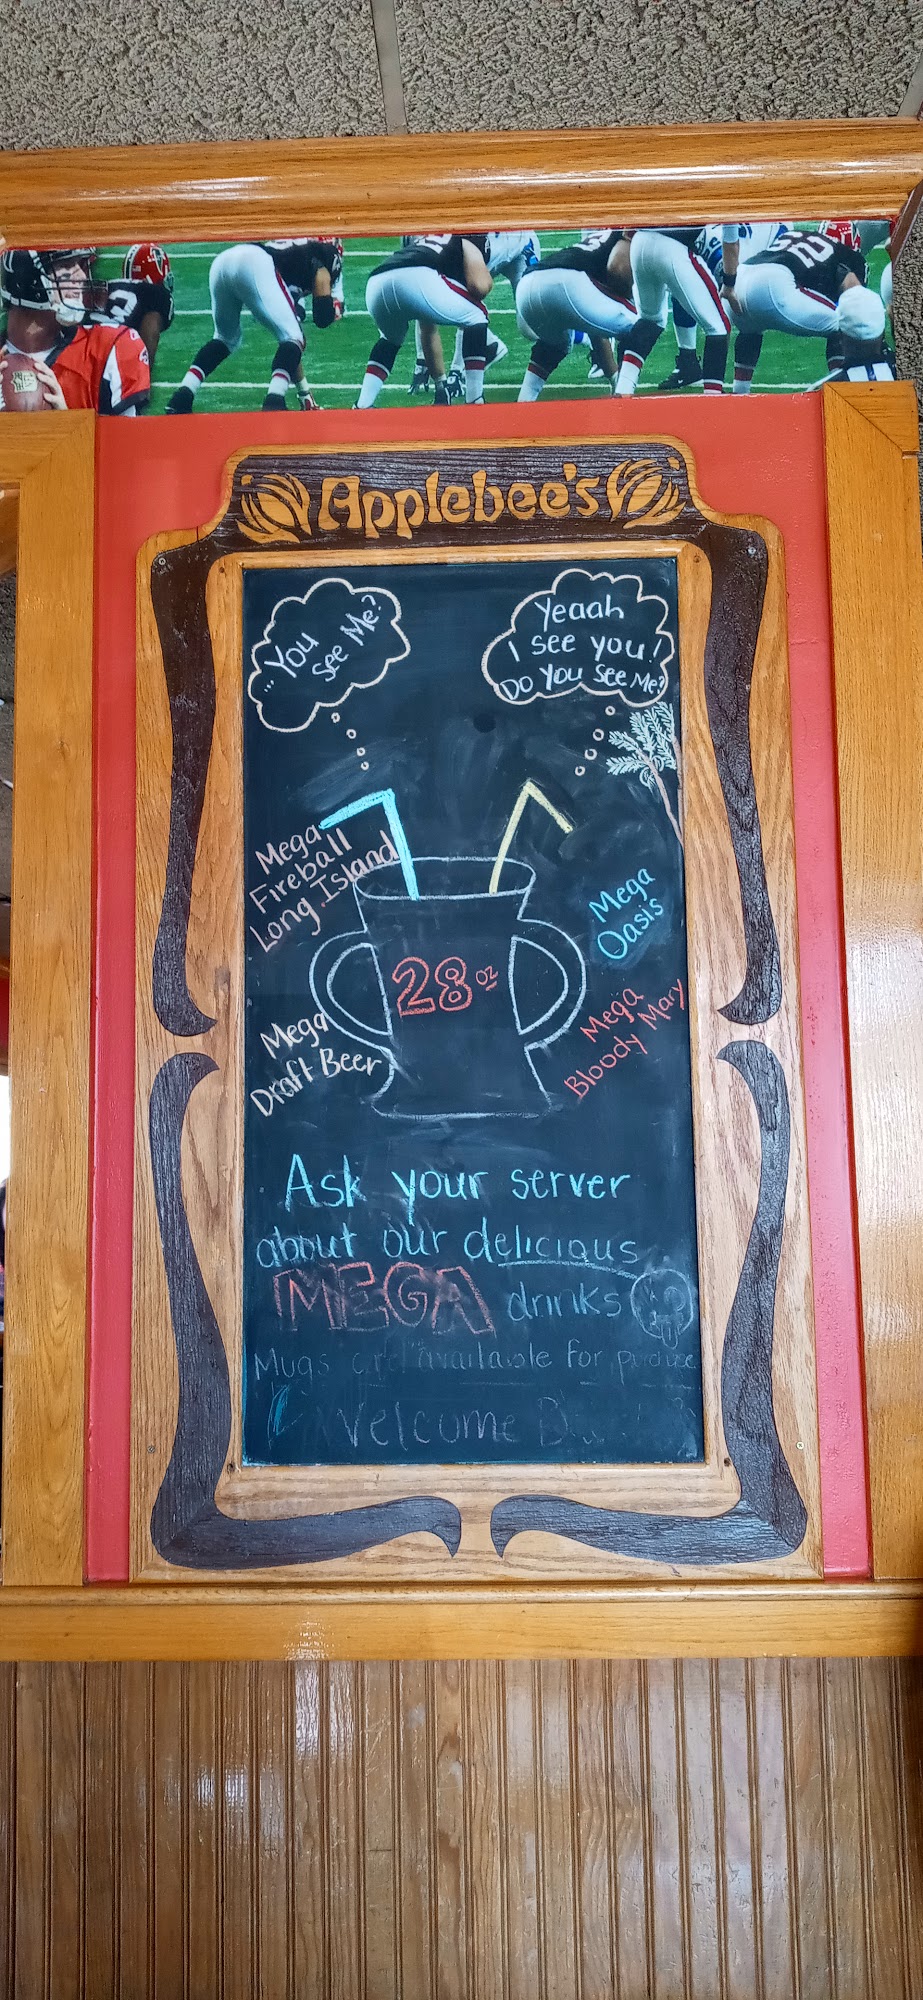 Applebee's
...You
See Me?
Yeaah
I see you!
Do You See Me?
Mega
Fireball
Long Island
Mega
Oasis
28 oz
Mega
Draft Beer
Mega
Bloody Mary
Ask your server
about our delicious
MEGA drinks
Mugs are available for
Welcome